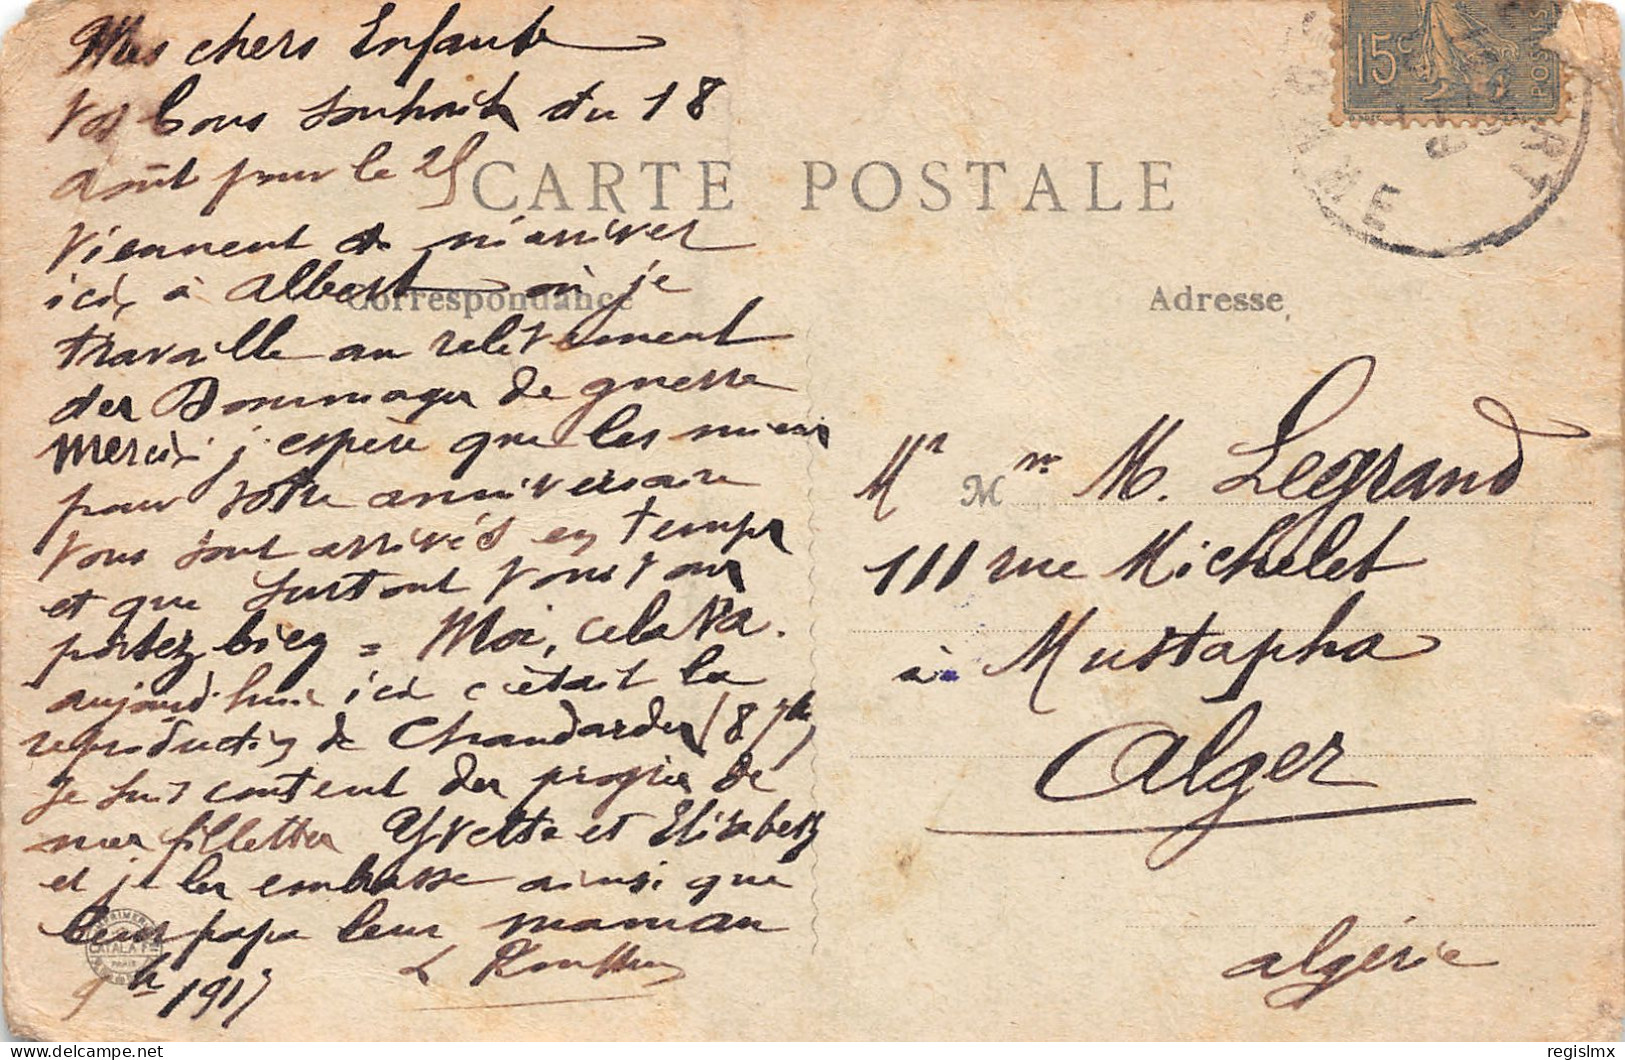 Mes chers Enfants
Vos bons souhaits du 18
août pour le 25
viennent de m'arriver
ici, à Albert où je
travaille au relèvement
des Dommages de guerre
Merci, j'espère que les miens
pour votre anniversaire
vous sont arrivés en temps
et que surtout vous vous
portez bien = Moi, cela va.
aujourd'hui ici c'était la
reproduction de Chandardes (8 7bre)
Je suis content des progrès de
mes fillettes Yvette et Elisabeth
et je les embrasse ainsi que
leur papa leur maman
CARTE POSTALE
Correspondance
Adresse
15c
POSTES
SOMME
Mr M me M. Legrand
111 rue Michelet
à Mustapha
Alger
algérie
delcampe.net
regislmx